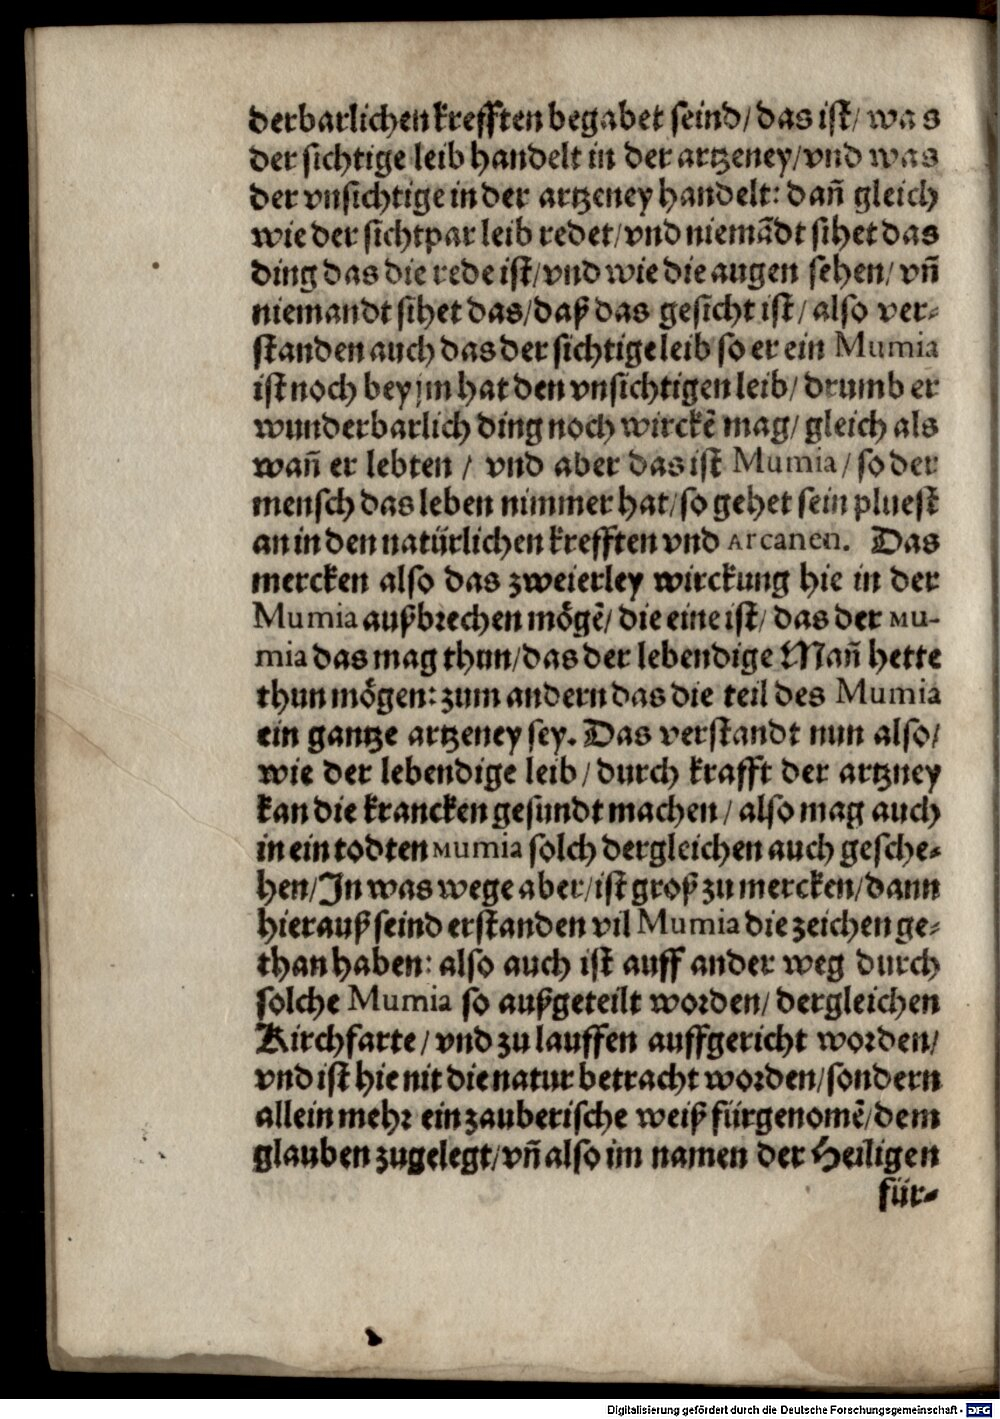 derbarlichen krefften begabet seind/ das ist/ was
der sichtige leib handelt in der artzeney/ vnd was
der vnsichtige in der artzeney handelt: dañ gleich
wie der sichtpar leib redet/ vnd niemādt sihet das
ding das die rede ist/ vnd wie die augen sehen/ vñ
niemandt sihet das/ daß das gesicht ist/ also ver-
standen auch das der sichtige leib so er ein Mumia
ist noch bey jm hat den vnsichtigen leib/ drumb er
wunderbarlich ding noch wirckē mag/ gleich als
wañ er lebten/ vnd aber das ist Mumia/ so der
mensch das leben nimmer hat/ so gehet sein pluest
an in den natürlichen krefften vnd Arcanen. Das
mercken also das zweierley wirckung hie in der
Mumia außbrechen mögē/ die eine ist/ das der Mu-
mia das mag thun/ das der lebendige Mañ hette
thun mögen: zum andern das die teil des Mumia
ein gantze artzeney sey. Das verstandt nun also/
wie der lebendige leib/ durch krafft der artzney
kan die krancken gesundt machen/ also mag auch
in ein todten Mumia solch dergleichen auch gesche-
hen/ In was wege aber/ ist groß zu mercken/ dann
hierauß seind erstanden vil Mumia die zeichen ge-
than haben: also auch ist auff ander weg durch
solche Mumia so außgeteilt worden/ dergleichen
Kirchfarte/ vnd zu lauffen auffgericht worden/
vnd ist hie nit die natur betracht worden/ sondern
allein mehr ein zauberische weiß fürgenomē/ dem
glauben zugelegt/ vñ also im namen der Heiligen
für-
Digitalisierung gefördert durch die Deutsche Forschungsgemeinschaft - DFG